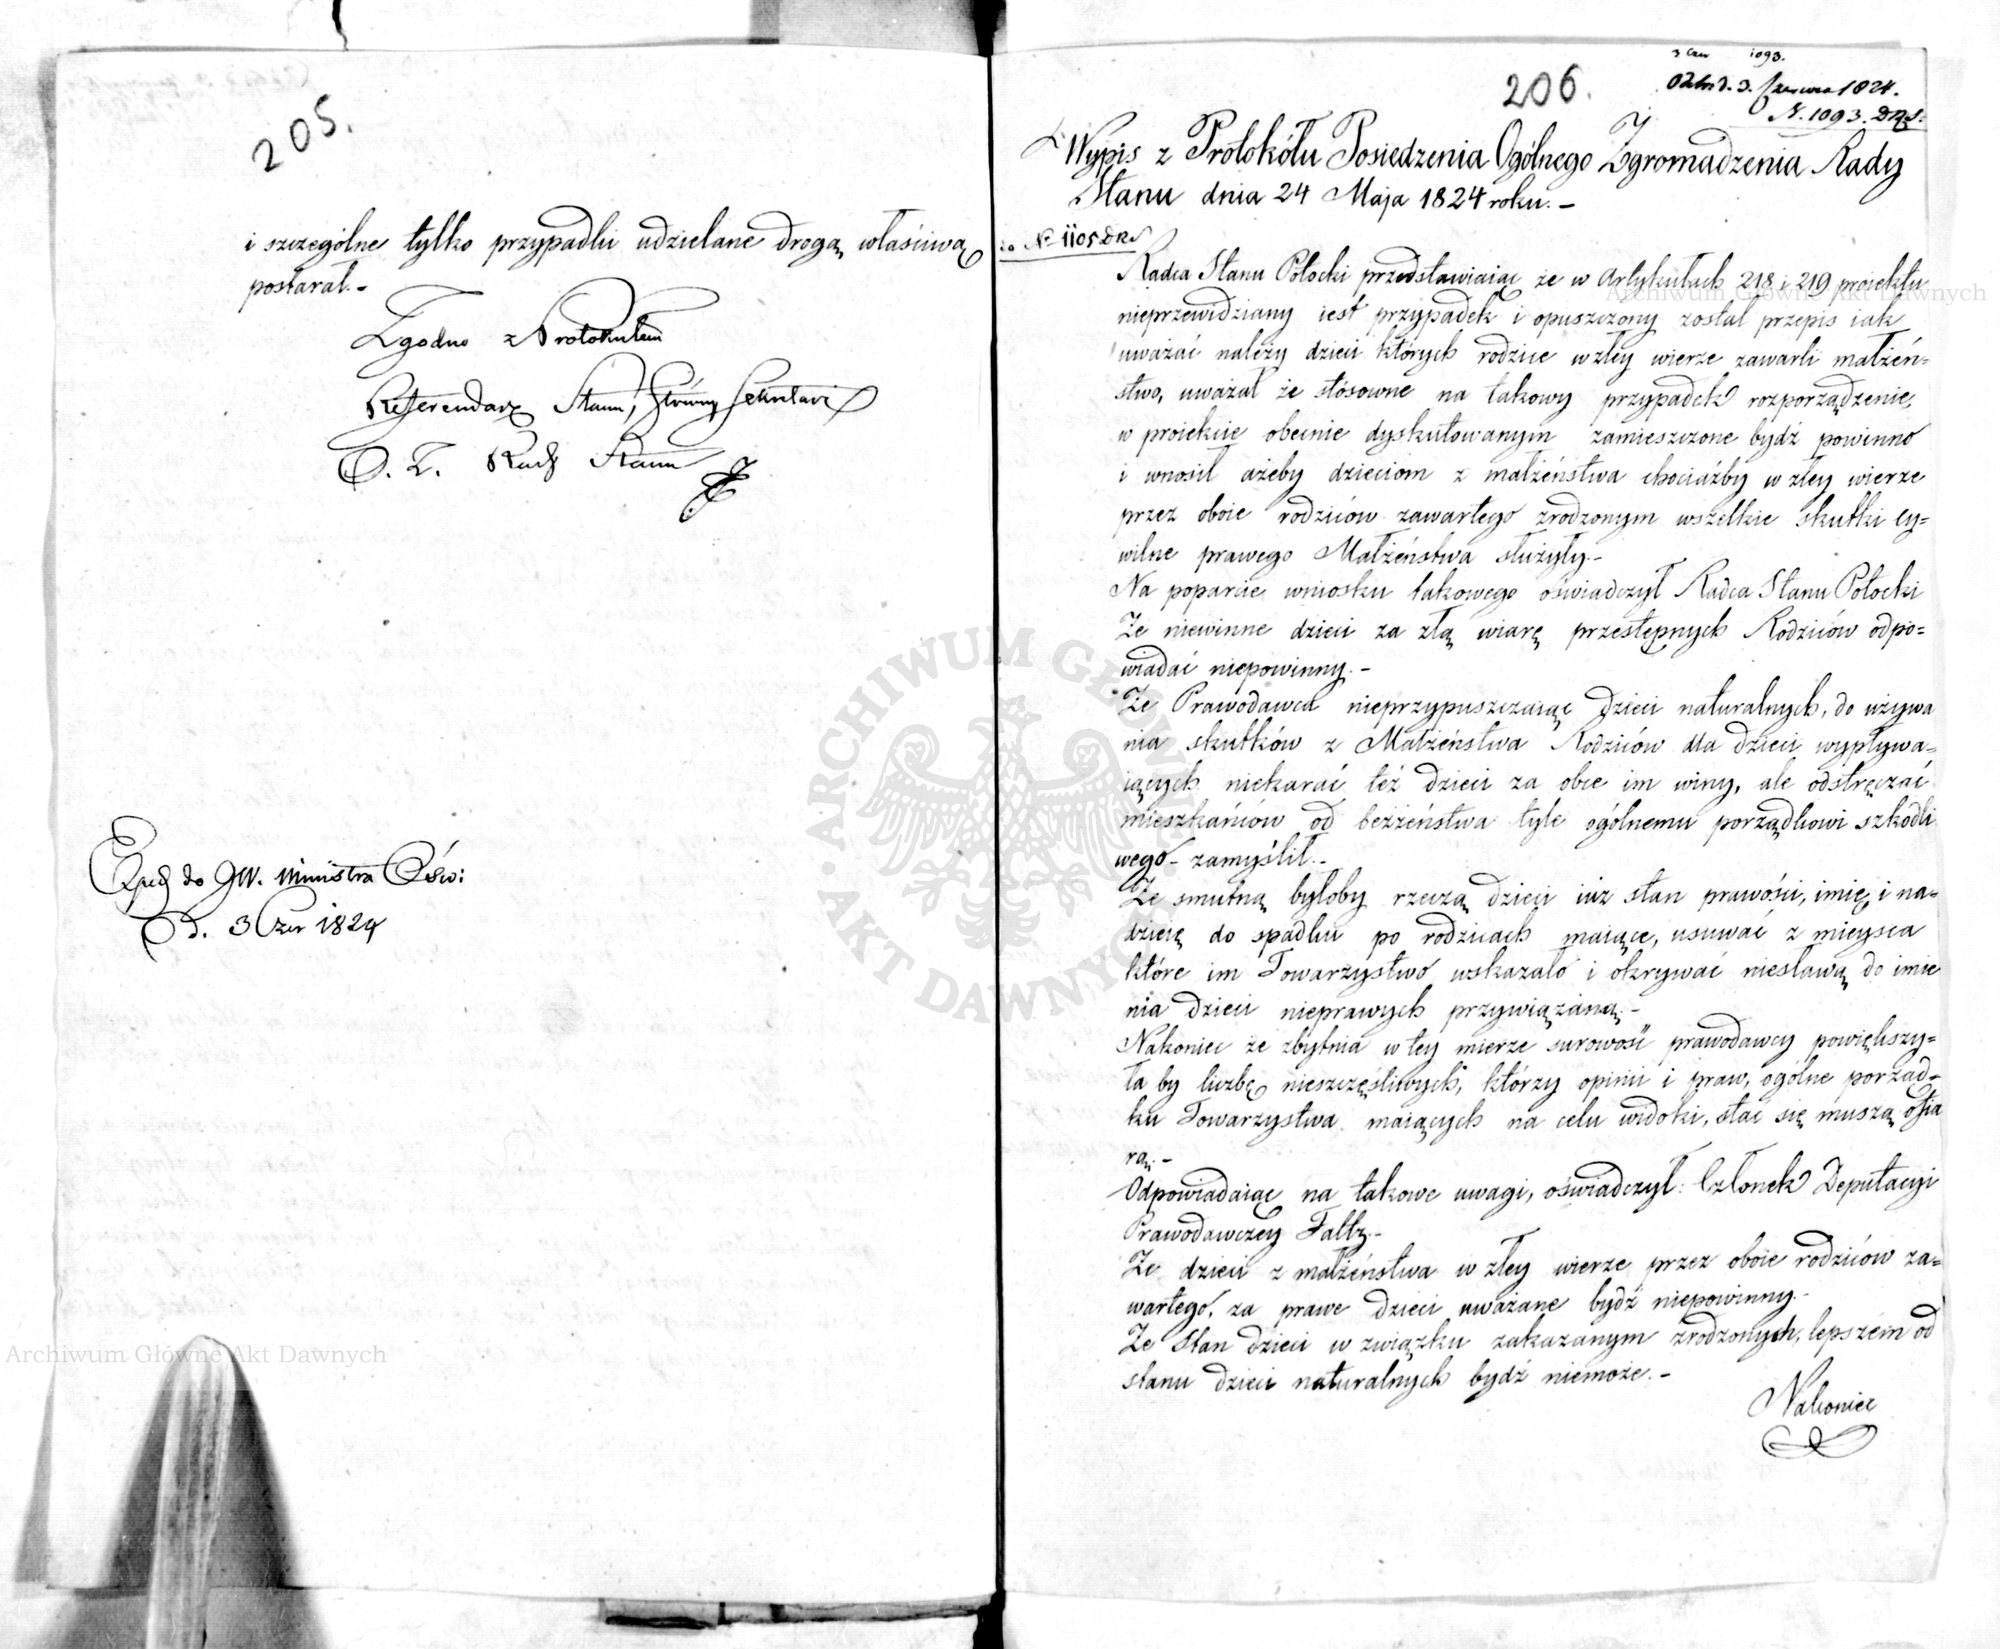 205.
i szczególne tylko przypadki udzielane drogą właściwą
postarał.-
Zgodno z Protokułem
Referendarz Stanu, Główny Sekretarz
Rady Stanu
do JW. Ministra
d. 3 Czer 1824
Archiwum Główne Akt Dawnych
3 Czer 1093.
206.
d. 3. Czerwca 1824.
N. 1093. DRS.
Wypis z Protokółu Posiedzenia Ogólnego Zgromadzenia Rady
Stanu dnia 24 Maja 1824 roku.-
N. 1105 DRS
Radca Stanu Potocki przedstawiaiąc że w Artykułach 218 i 219 proiektu
Archiwum Główne Akt Dawnych
nieprzewidziany iest przypadek i opuszczony został przepis iak
uważać należy dzieci których rodzice w złey wierze zawarli małżeń=
stwo, uważał że stósowne na takowy przypadek rozporządzenie,
w proiekcie obecnie dyskutowanym zamieszczone bydź powinno
i wnosił ażeby dzieciom z małżeństwa chociażby w złey wierze
przez oboie rodziców zawartego zrodzonym wszelkie skutki cy=
wilne prawego Małżeństwa służyły.-
Na poparcie wniosku takowego oświadczył Radca Stanu Potocki
Że niewinne dzieci za złą wiarę przestępnych Rodziców odpo=
wiadać niepowinny.-
Że Prawodawca nieprzypuszczaiąc dzieci naturalnych, do używa
nia skutków z Małżeństwa Rodziców dla dzieci wypływa=
iących niekarać też dzieci za obce im winy, ale odstręczać
mieszkańców od bezżeństwa tyle ogólnemu porządkowi szkodli
wego- zamyślił.-
Że smutną byłoby rzeczą dzieci iuż stan prawości, imię i na=
dzieię do spadku po rodzicach maiące, usuwać z mieysca
które im Towarzystwo wskazało i okrywać niesławą do imie
nia dzieci nieprawych przywiązaną.-
Nakoniec że zbytnia w tey mierze surowość prawodawcy powiększy=
ła by liczbę nieszczęśliwych, którzy opinii i praw, ogólne porząd=
ku Towarzystwa maiących na celu widoki, stać się muszą ofia
rą.-
Odpowiadaiąc na takowe uwagi, oświadczył: Członek Deputacyi
Prawodawczey Faltz.-
Że dzieci z małżeństwa w złey wierze przez oboie rodziców za=
wartego, za prawe dzieci uważane bydź niepowinny.-
Że Stan dzieci w związku zakazanym zrodzonych, lepszém od
stanu dzieci naturalnych bydź niemoże.-
Nakoniec
ARCHIWUM GŁÓWNE AKT DAWNYCH